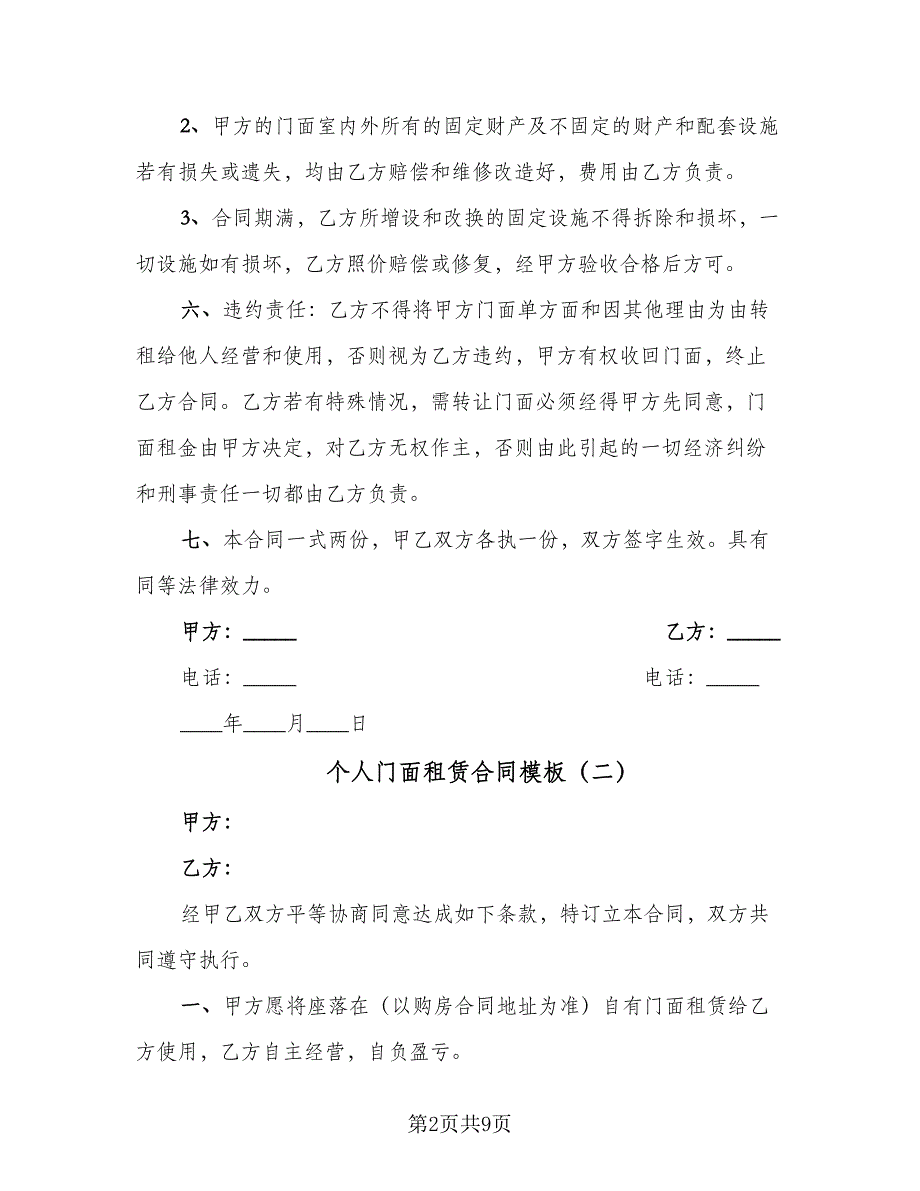 2、甲方的门面室内外所有的固定财产及不固定的财产和配套设施
若有损失或遗失，均由乙方赔偿和维修改造好，费用由乙方负责。
3、合同期满，乙方所增设和改换的固定设施不得拆除和损坏，一
切设施如有损坏，乙方照价赔偿或修复，经甲方验收合格后方可。
六、违约责任：乙方不得将甲方门面单方面和因其他理由为由转
租给他人经营和使用，否则视为乙方违约，甲方有权收回门面，终止
乙方合同。乙方若有特殊情况，需转让门面必须经得甲方先同意，门
面租金由甲方决定，对乙方无权作主，否则由此引起的一切经济纠纷
和刑事责任一切都由乙方负责。
七、本合同一式两份，甲乙双方各执一份，双方签字生效。具有
同等法律效力。
甲方：_____ 乙方：_____
电话：_____ 电话：_____
____年____月____日
个人门面租赁合同模板（二）
甲方：
乙方：
经甲乙双方平等协商同意达成如下条款，特订立本合同，双方共
同遵守执行。
一、甲方愿将座落在（以购房合同地址为准）自有门面租赁给乙
方使用，乙方自主经营，自负盈亏。
第2页共9页